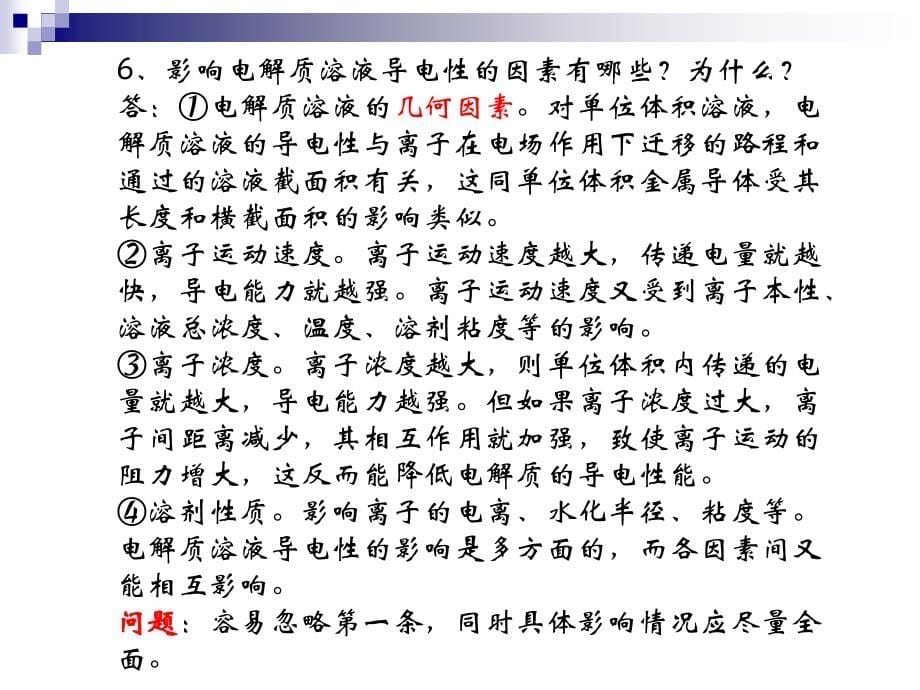 6、影响电解质溶液导电性的因素有哪些？为什么？
答：①电解质溶液的几何因素。对单位体积溶液，电
解质溶液的导电性与离子在电场作用下迁移的路程和
通过的溶液截面积有关，这同单位体积金属导体受其
长度和横截面积的影响类似。
②离子运动速度。离子运动速度越大，传递电量就越
快，导电能力就越强。离子运动速度又受到离子本性、
溶液总浓度、温度、溶剂粘度等的影响。
③离子浓度。离子浓度越大，则单位体积内传递的电
量就越大，导电能力越强。但如果离子浓度过大，离
子间距离减少，其相互作用就加强，致使离子运动的
阻力增大，这反而能降低电解质的导电性能。
④溶剂性质。影响离子的电离、水化半径、粘度等。
电解质溶液导电性的影响是多方面的，而各因素间又
能相互影响。
问题：容易忽略第一条，同时具体影响情况应尽量全
面。